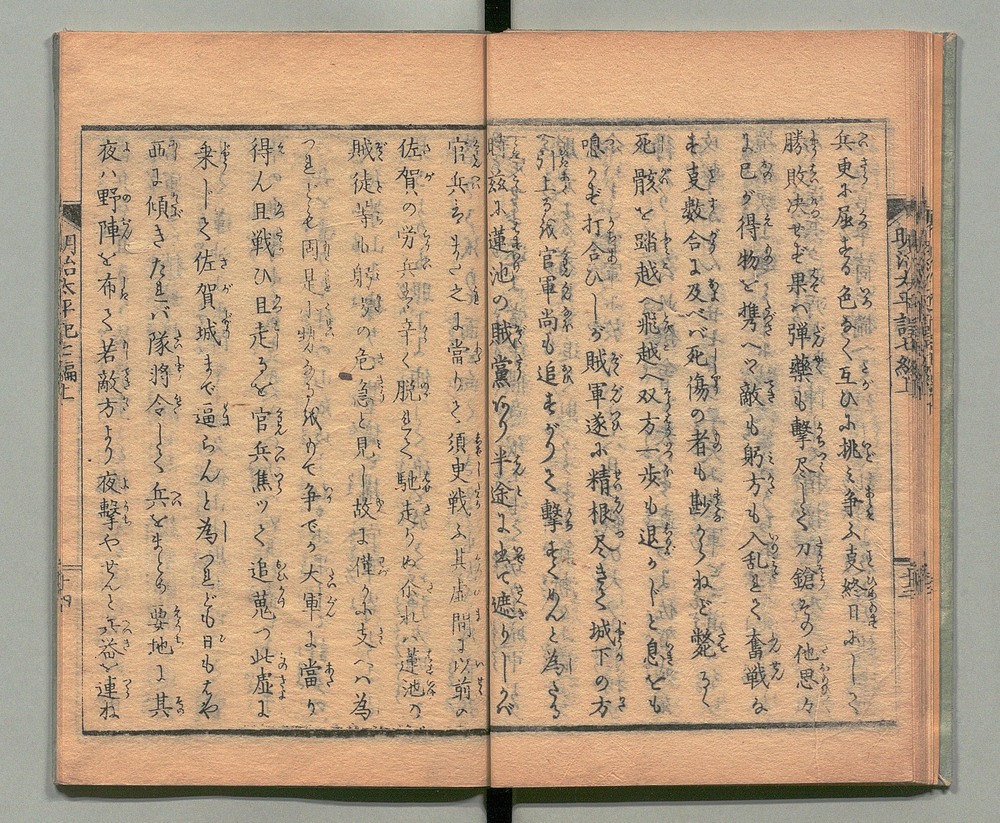 兵更に屈する色なく互ひに挑み争ふ支終日にして
勝敗决せず果ハ弾藥も撃尽して刀鎗その他思々
に已が得物を携へツ敵も躬方も入乱れて奮戦な
も支数合に及べバ死傷の者も尠からねど斃るゝ
死骸を踏越へ飛越へ双方一歩も退かじと息をも
喰かず打合ひしが賊軍遂に精根尽きて城下の方
へ引上るを官軍尚も追すがりて撃すくめんと為たる
時茲に蓮池の賊黨より半途に出て遮りしかバ
官兵まづ之に當りて須更戦ふ其虚間に以前の
佐賀の労兵ハ辛く脱れて馳走りぬ余れバ蓮池の
賊徒等ハ躬方の危急と見し故に僅かに支へハ為
つれども両是小勢なるをがて争でか大軍に當り
得ん且戦ひ且走るを官兵焦ツて追蒐つ此虚に
乗じて佐賀城まで逼らんと為つれども日もはや
西に傾きたれバ隊將令して兵をまとめ要地に其
夜ハ野陣を布て若敵方より夜撃やせんと兵器を連ね
明治太平記七編上